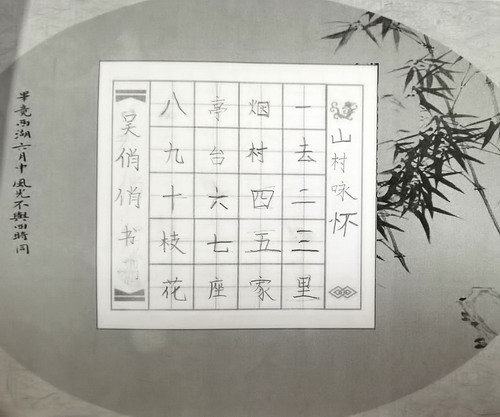 山村咏怀
一去二三里
烟村四五家
亭台六七座
八九十枝花
吴俏俏书
毕竟西湖六月中风光不與四時同